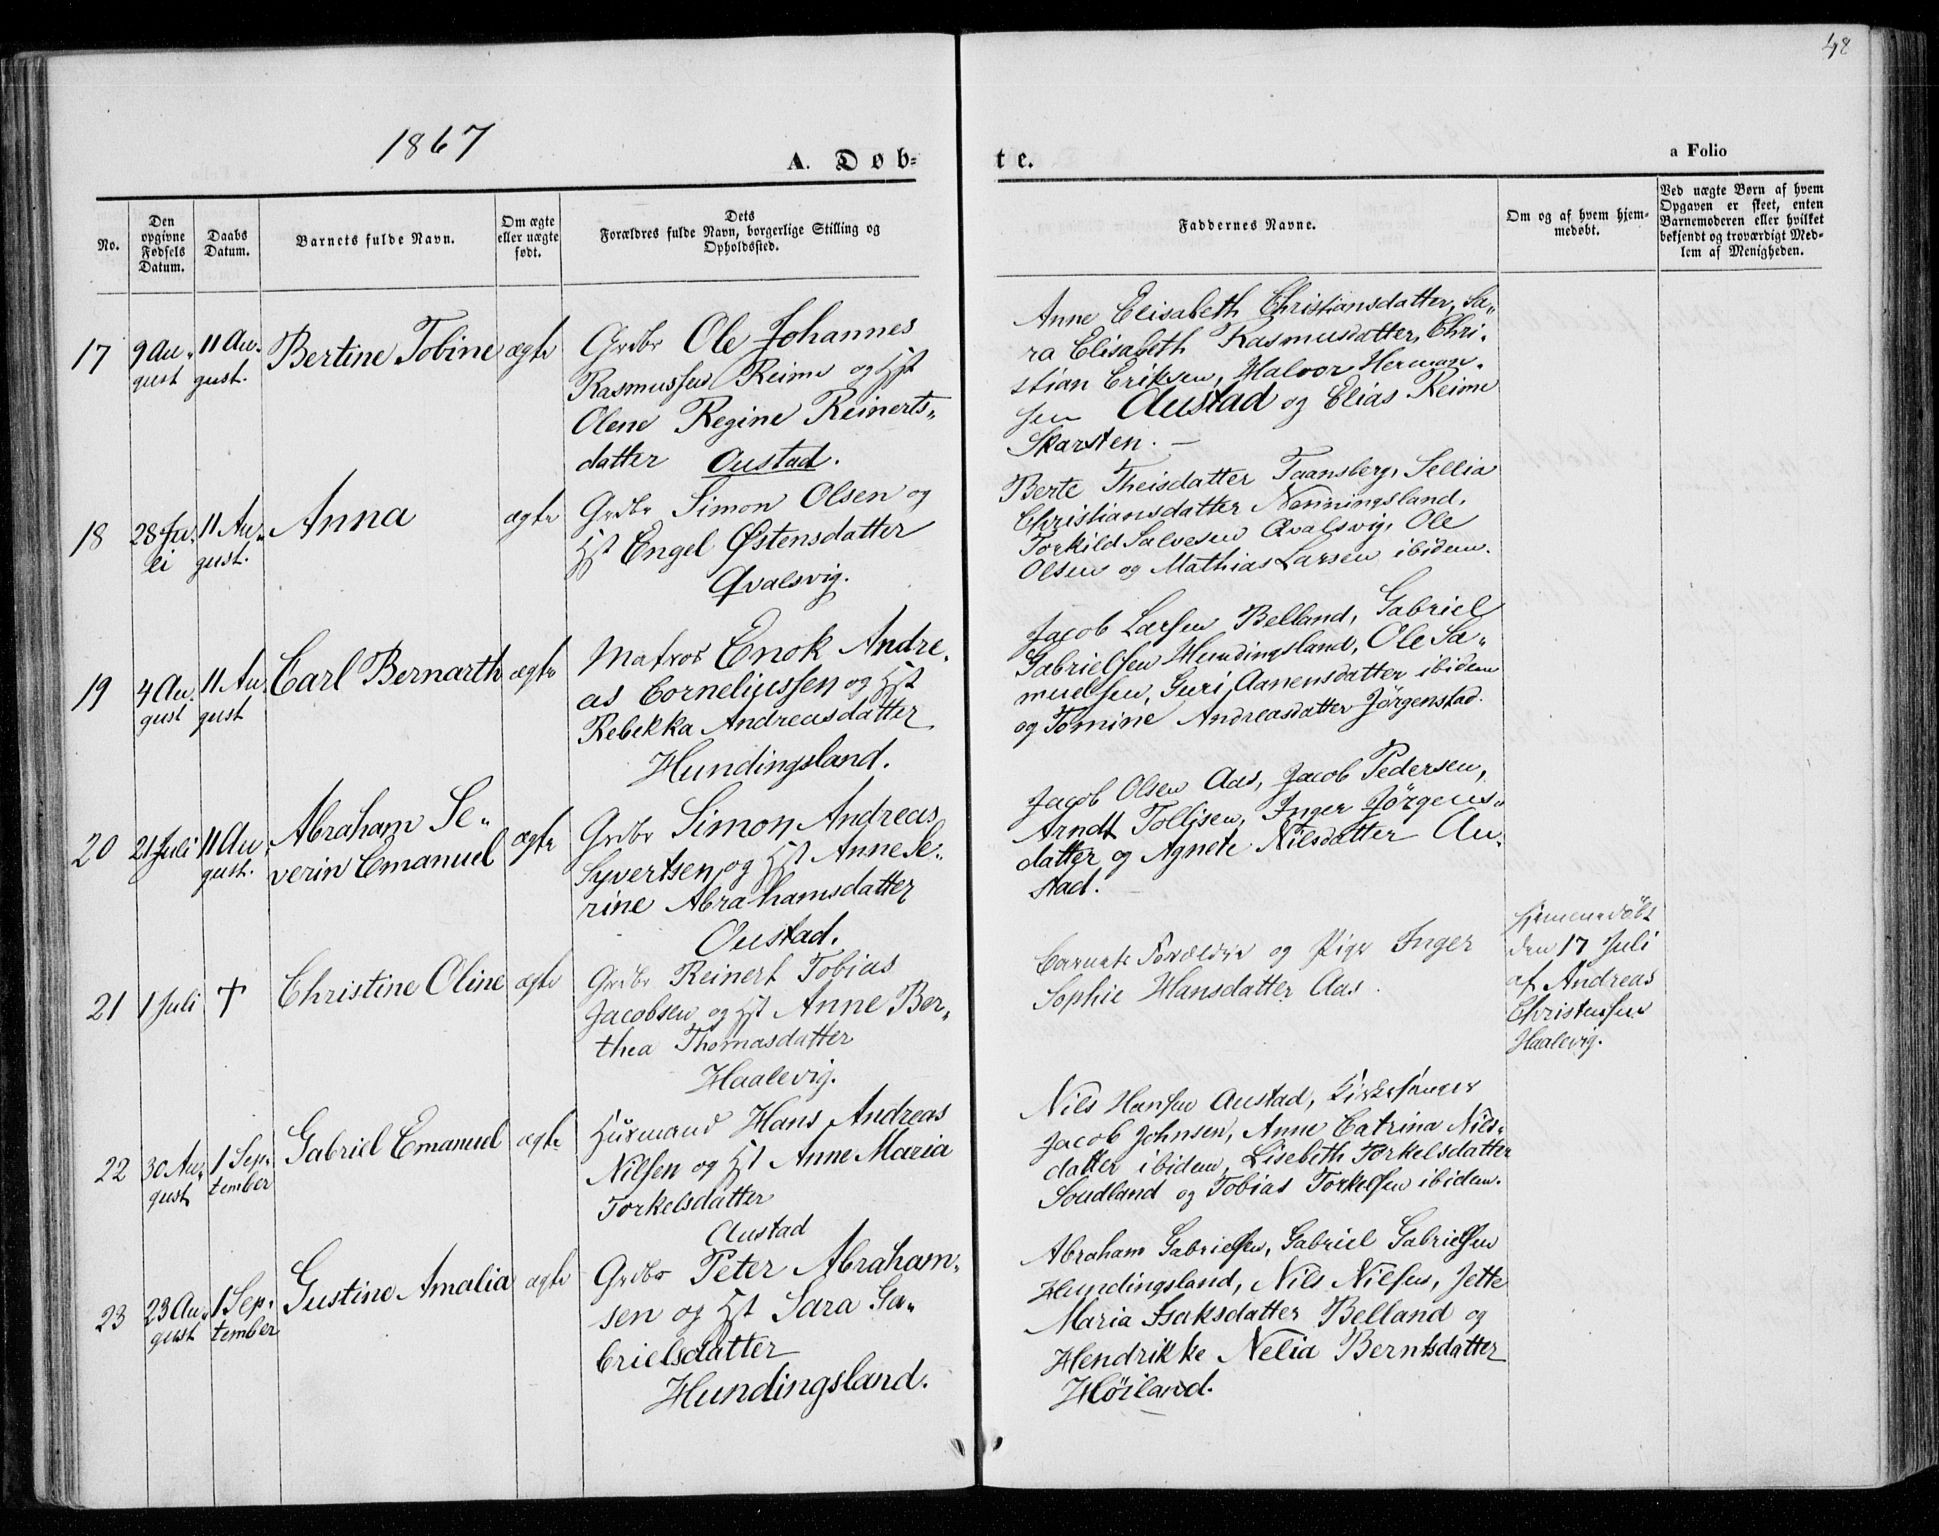 48
1867
A. Døb-
te.
a Folio
No.
Den opgivne Fødsels Datum.
Daabs Datum.
Barnets fulde Navn.
Om ægte eller uægte født.
Dets Forældres fulde Navn, borgerlige Stilling og Opholdssted.
Faddernes Navne.
Om og af hvem hjemmedøbt.
Ved uægte Børn af hvem Opgaven er skeet, enten Barnemoderen eller hvilket bekjendt og troværdigt Medlem af Menigheden.
17
9 Au-
gust
11 Au-
gust.
Bertine Tobine
ægte
Grdbr Ole Johannes
Rasmussen Reime og Hst
Olene Regine Reinerts-
datter Oustad.
Anne Elisabeth Christiansdatter, Sa-
ra Elisabeth Rasmusdatter, Chri-
stian Eriksen, Halvor Herman-
sen Austad og Elias Reime
Skarsten.
18
28 Ju-
li
11 Au-
gust.
Anna
ægte
Grdbr Simon Olsen og
Hst Engel Østensdatter
Qvalsvig.
Berte Theisdatter Taansberg, Sellia
Christiansdatter Nenningsland,
Torkild Salvesen Qvalsvig, Ole
Olsen og Mathias Larsen ibidem.
19
4 Au-
gust
11 Au-
gust
Carl Bernarth
ægte
Matros Enok Andre-
as Corneliussen og Hst
Rebekka Andreasdatter
Hundingsland.
Jacob Larsen Belland, Gabriel
Gabrielsen Hundingsland, Ole Sa-
muelsen, Guri Aanensdatter ibidem
og Tomine Andreasdatter Jørgenstad.
20
21 Juli
11 Au-
gust.
Abraham Se-
verin Emanuel
ægte
Grdbr Simon Andreas
Syvertsen og Hst Anne Se-
rine Abrahamsdatter
Oustad.
Jacob Olsen Aas, Jacob Pedersen,
Arndt Tollisen, Inger Jørgens-
datter og Agnete Nilsdatter Au-
stad.
21
1 Juli
†
Christine Oline
ægte
Grdbr Reinert Tobias
Jacobsen og Hst Anne Ber-
thea Thomasdatter
Haalevig.
Barnets Forældre og Pige Inger
Sophie Hansdatter Aas.
hjemmedöbt
den 17 Juli
af Andreas
Christensen
Haalevig.
22
30 Au-
gust
1 Sep-
tember
Gabriel Emanuel
ægte
Husmand Hans Andreas
Nilsen og Hst Anne Maria
Torkelsdatter
Austad
Nils Hansen Austad, Kirkesanger
Jacob Johnsen, Anne Catrina Nils-
datter ibidem, Lisebeth Torkelsdatter
Soudland og Tobias Torkelsen ibidem.
23
23 Au-
gust
1 Sep-
tember
Gustine Amalia
ægte
Grdbr Peter Abraham-
sen og Hst Sara Ga-
brielsdatter
Hundingsland.
Abraham Gabrielsen, Gabriel Gabrielsen
Hundingsland, Nils Nilsen, Jette
Maria Isaksdatter Belland og
Hendrikke Nelia Berntsdatter
Höiland.